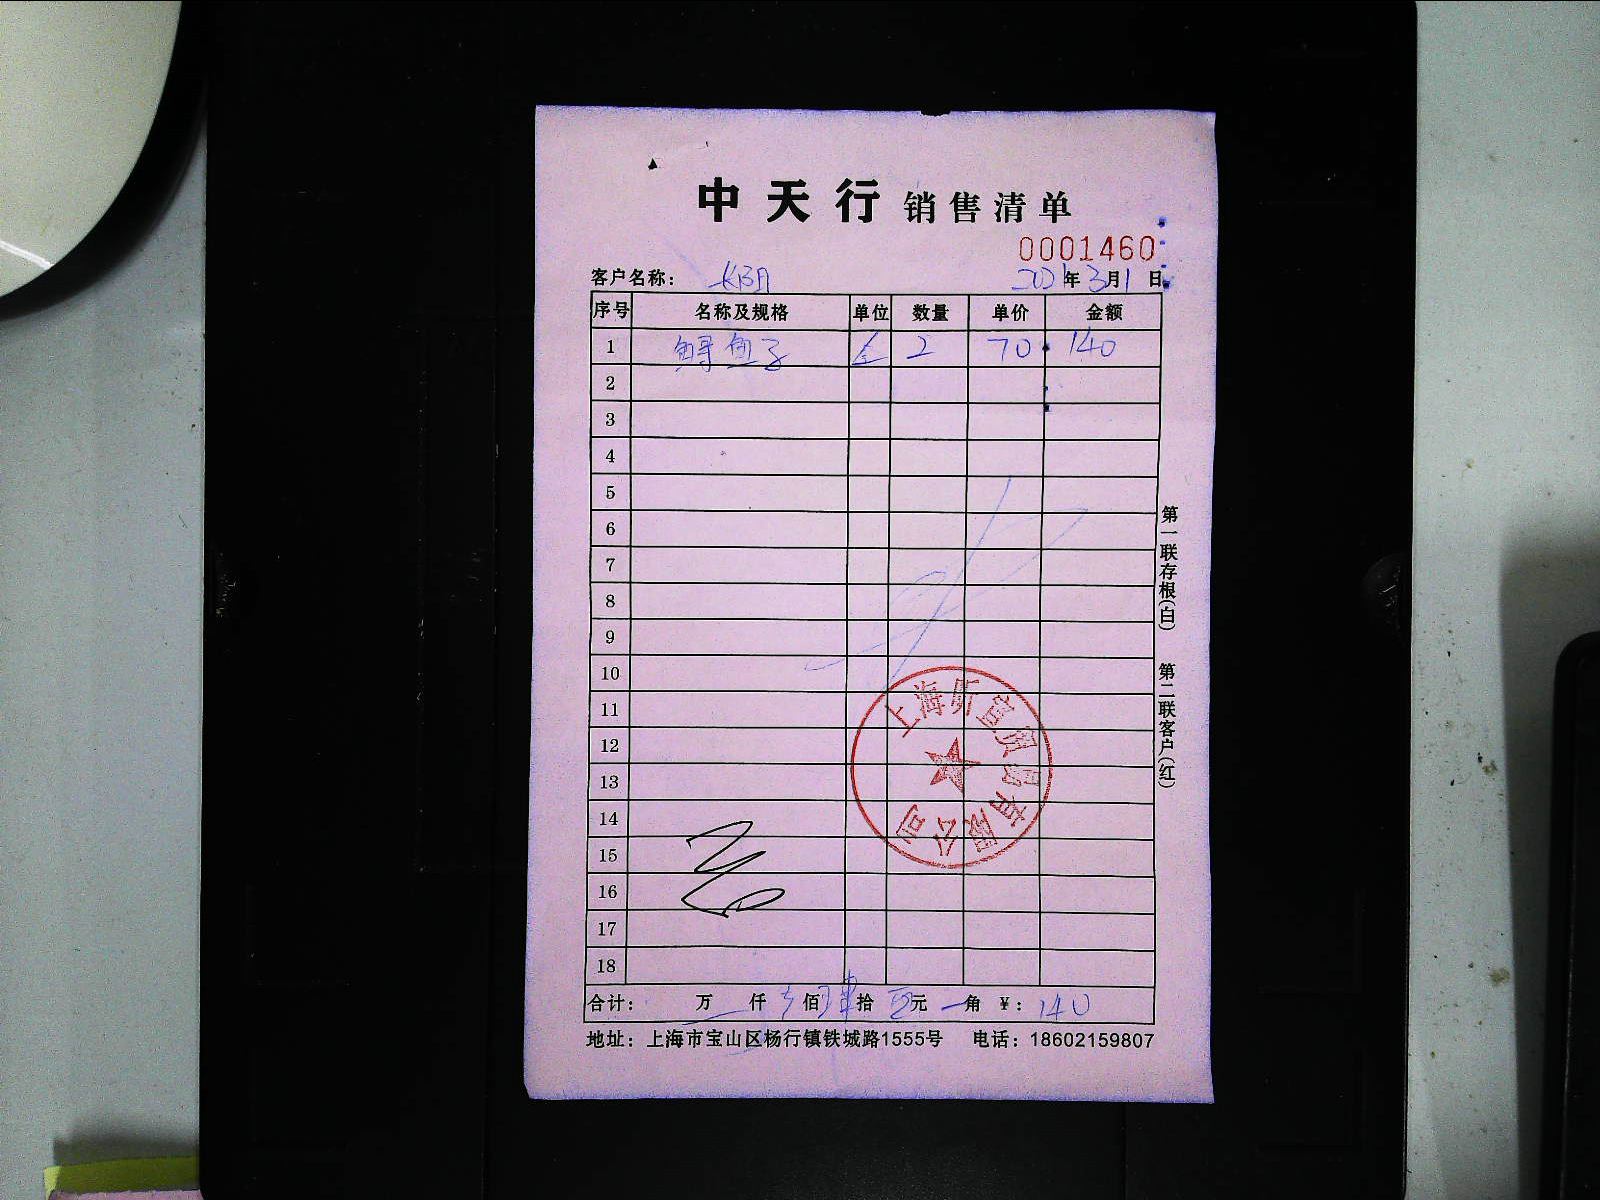 中天行 销售清单
0001460
客户名称： KBA 2021年3月1日
序号 名称及规格 单位 数量 单价 金额
1 鲟鱼子 2 70 140
2
3
4
5
6
7
8
9
10
11
12
13
14
15
16
17
18
合计： 万 仟 佰 肆拾 元 角 ¥：140
地址：上海市宝山区杨行镇铁城路1555号 电话：18602159807
第一联存根(白) 第二联客户(红)
上海 贸易有限公司